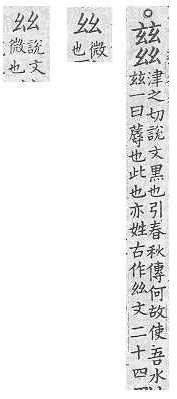 ○玆𢆶
津之切說文黑也引春秋傳何故使吾水
玆一曰蓐也此也亦姓古作𢆶文二十四
𢆶
微
也
𢆶
說文
微也